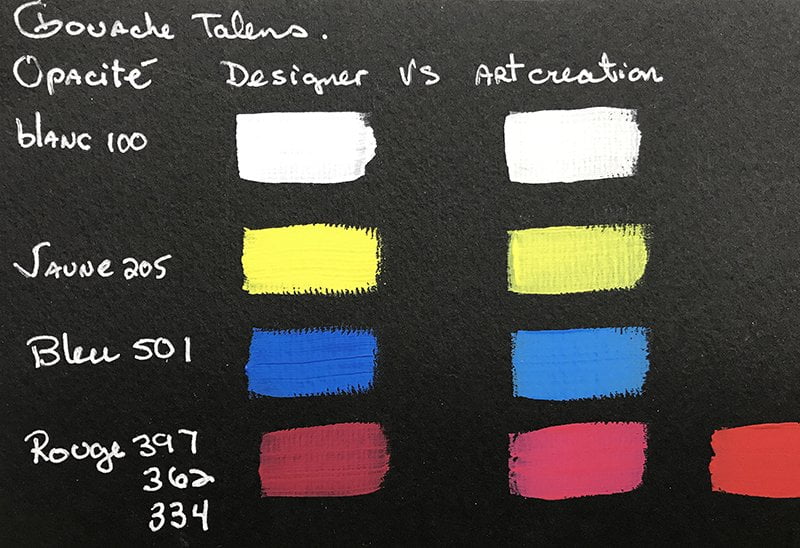 Gouache Talens.
Opacité Designer vs Artcreation
blanc 100
Jaune 205
Bleu 501
Rouge 397
362
334